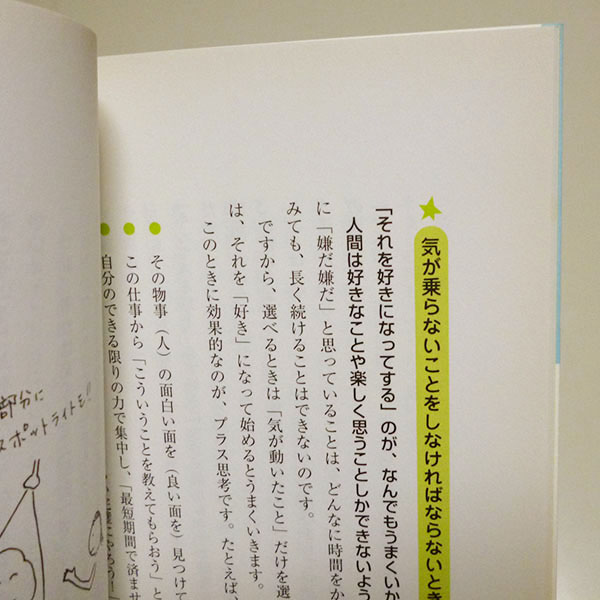 気が乗らないことをしなければならないとき
「それを好きになってする」のが、なんでもうまくいか
人間は好きなことや楽しく思うことしかできないよう
に「嫌だ嫌だ」と思っていることは、どんなに時間をか
みても、長く続けることはできないのです。
ですから、選べるときは「気が動いたこと」だけを選
は、それを「好き」になって始めるとうまくいきます。
このときに効果的なのが、プラス思考です。たとえば、
その物事（人）の面白い面を（良い面を）見つけて
この仕事から「こういうことを教えてもらおう」と
自分のできる限りの力で集中し、「最短期間で済ませ
部分に
スポットライトを!!